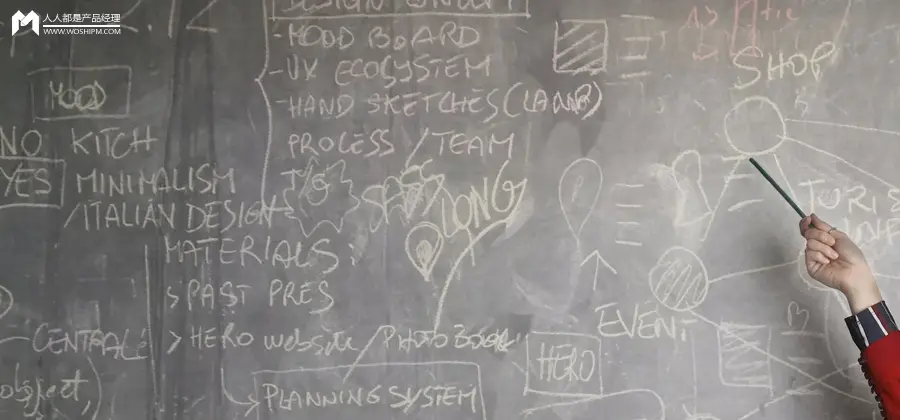 人人都是产品经理
WWW.WOSHIPM.COM
DESIGN CONCEPT
-MOOD BOARD
-UX ECOSYSTEM
-HAND SKETCHES (LAMP)
PROCESS / TEAM
MOOD
NO KITCH
YES MINIMALISM
/ITALIAN DESIGN
MATERIALS
>PAST PRES
CENTRAL >HERO website / PHOTO BOOK
object,
PLANNING SYSTEM
LONG
SHOP
EVENT
HERO